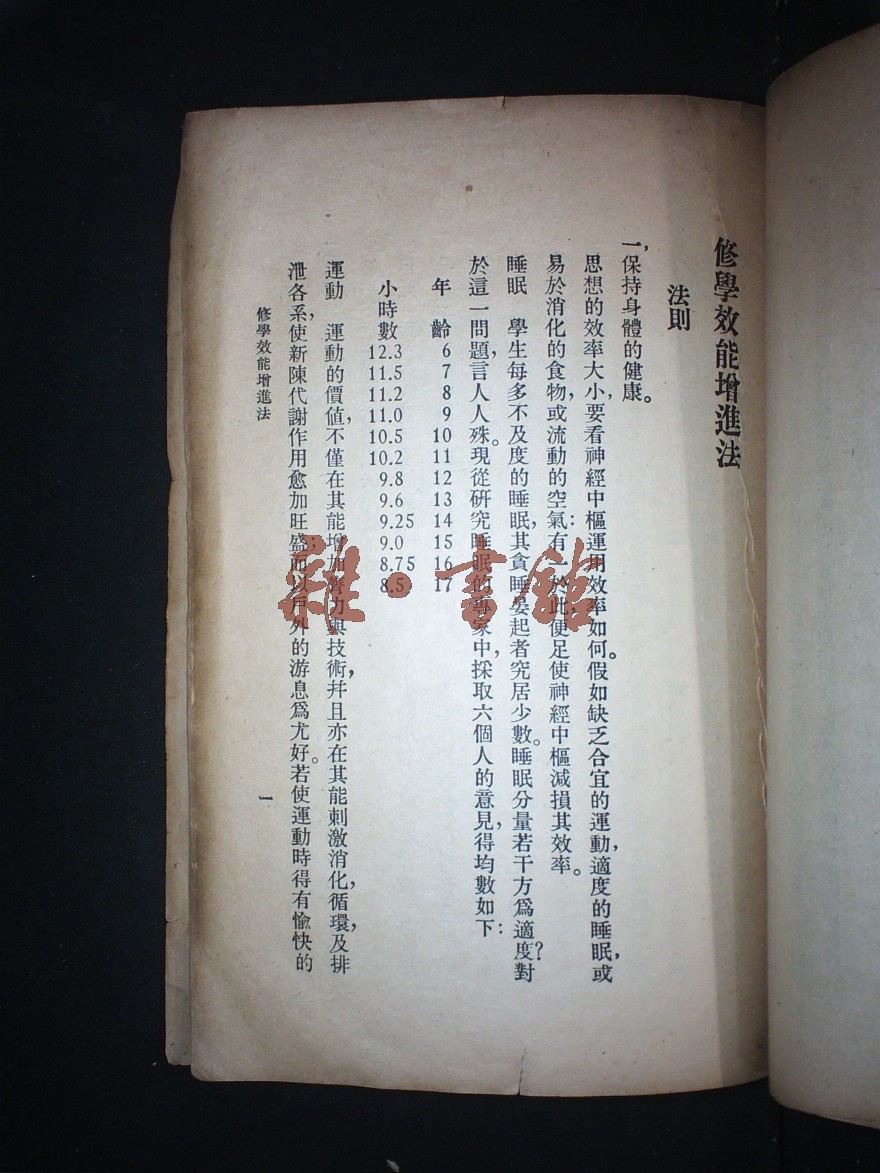 修學效能增進法
法則
一，保持身體的健康。
思想的效率大小，要看神經中樞運用效率如何。假如缺乏合宜的運動，適度的睡眠，或
易於消化的食物，或流動的空氣：有一於此，便足使神經中樞減損其效率。
睡眠　學生每多不及度的睡眠，其貪睡晏起者究居少數。睡眠分量若干方爲適度？對
於這一問題，言人人殊。現從研究睡眠的專家中，採取六個人的意見，得均數如下：
年　齡 6 7 8 9 10 11 12 13 14 15 16 17
小時數 12.3 11.5 11.2 11.0 10.5 10.2 9.8 9.6 9.25 9.0 8.75 8.5
運動　運動的價值，不僅在其能增加膂力與技術，幷且亦在其能刺激消化，循環，及排
泄各系，使新陳代謝作用愈加旺盛；而以戶外的游息爲尤好。若使運動時得有愉快的
修學效能增進法
一
雜·書館